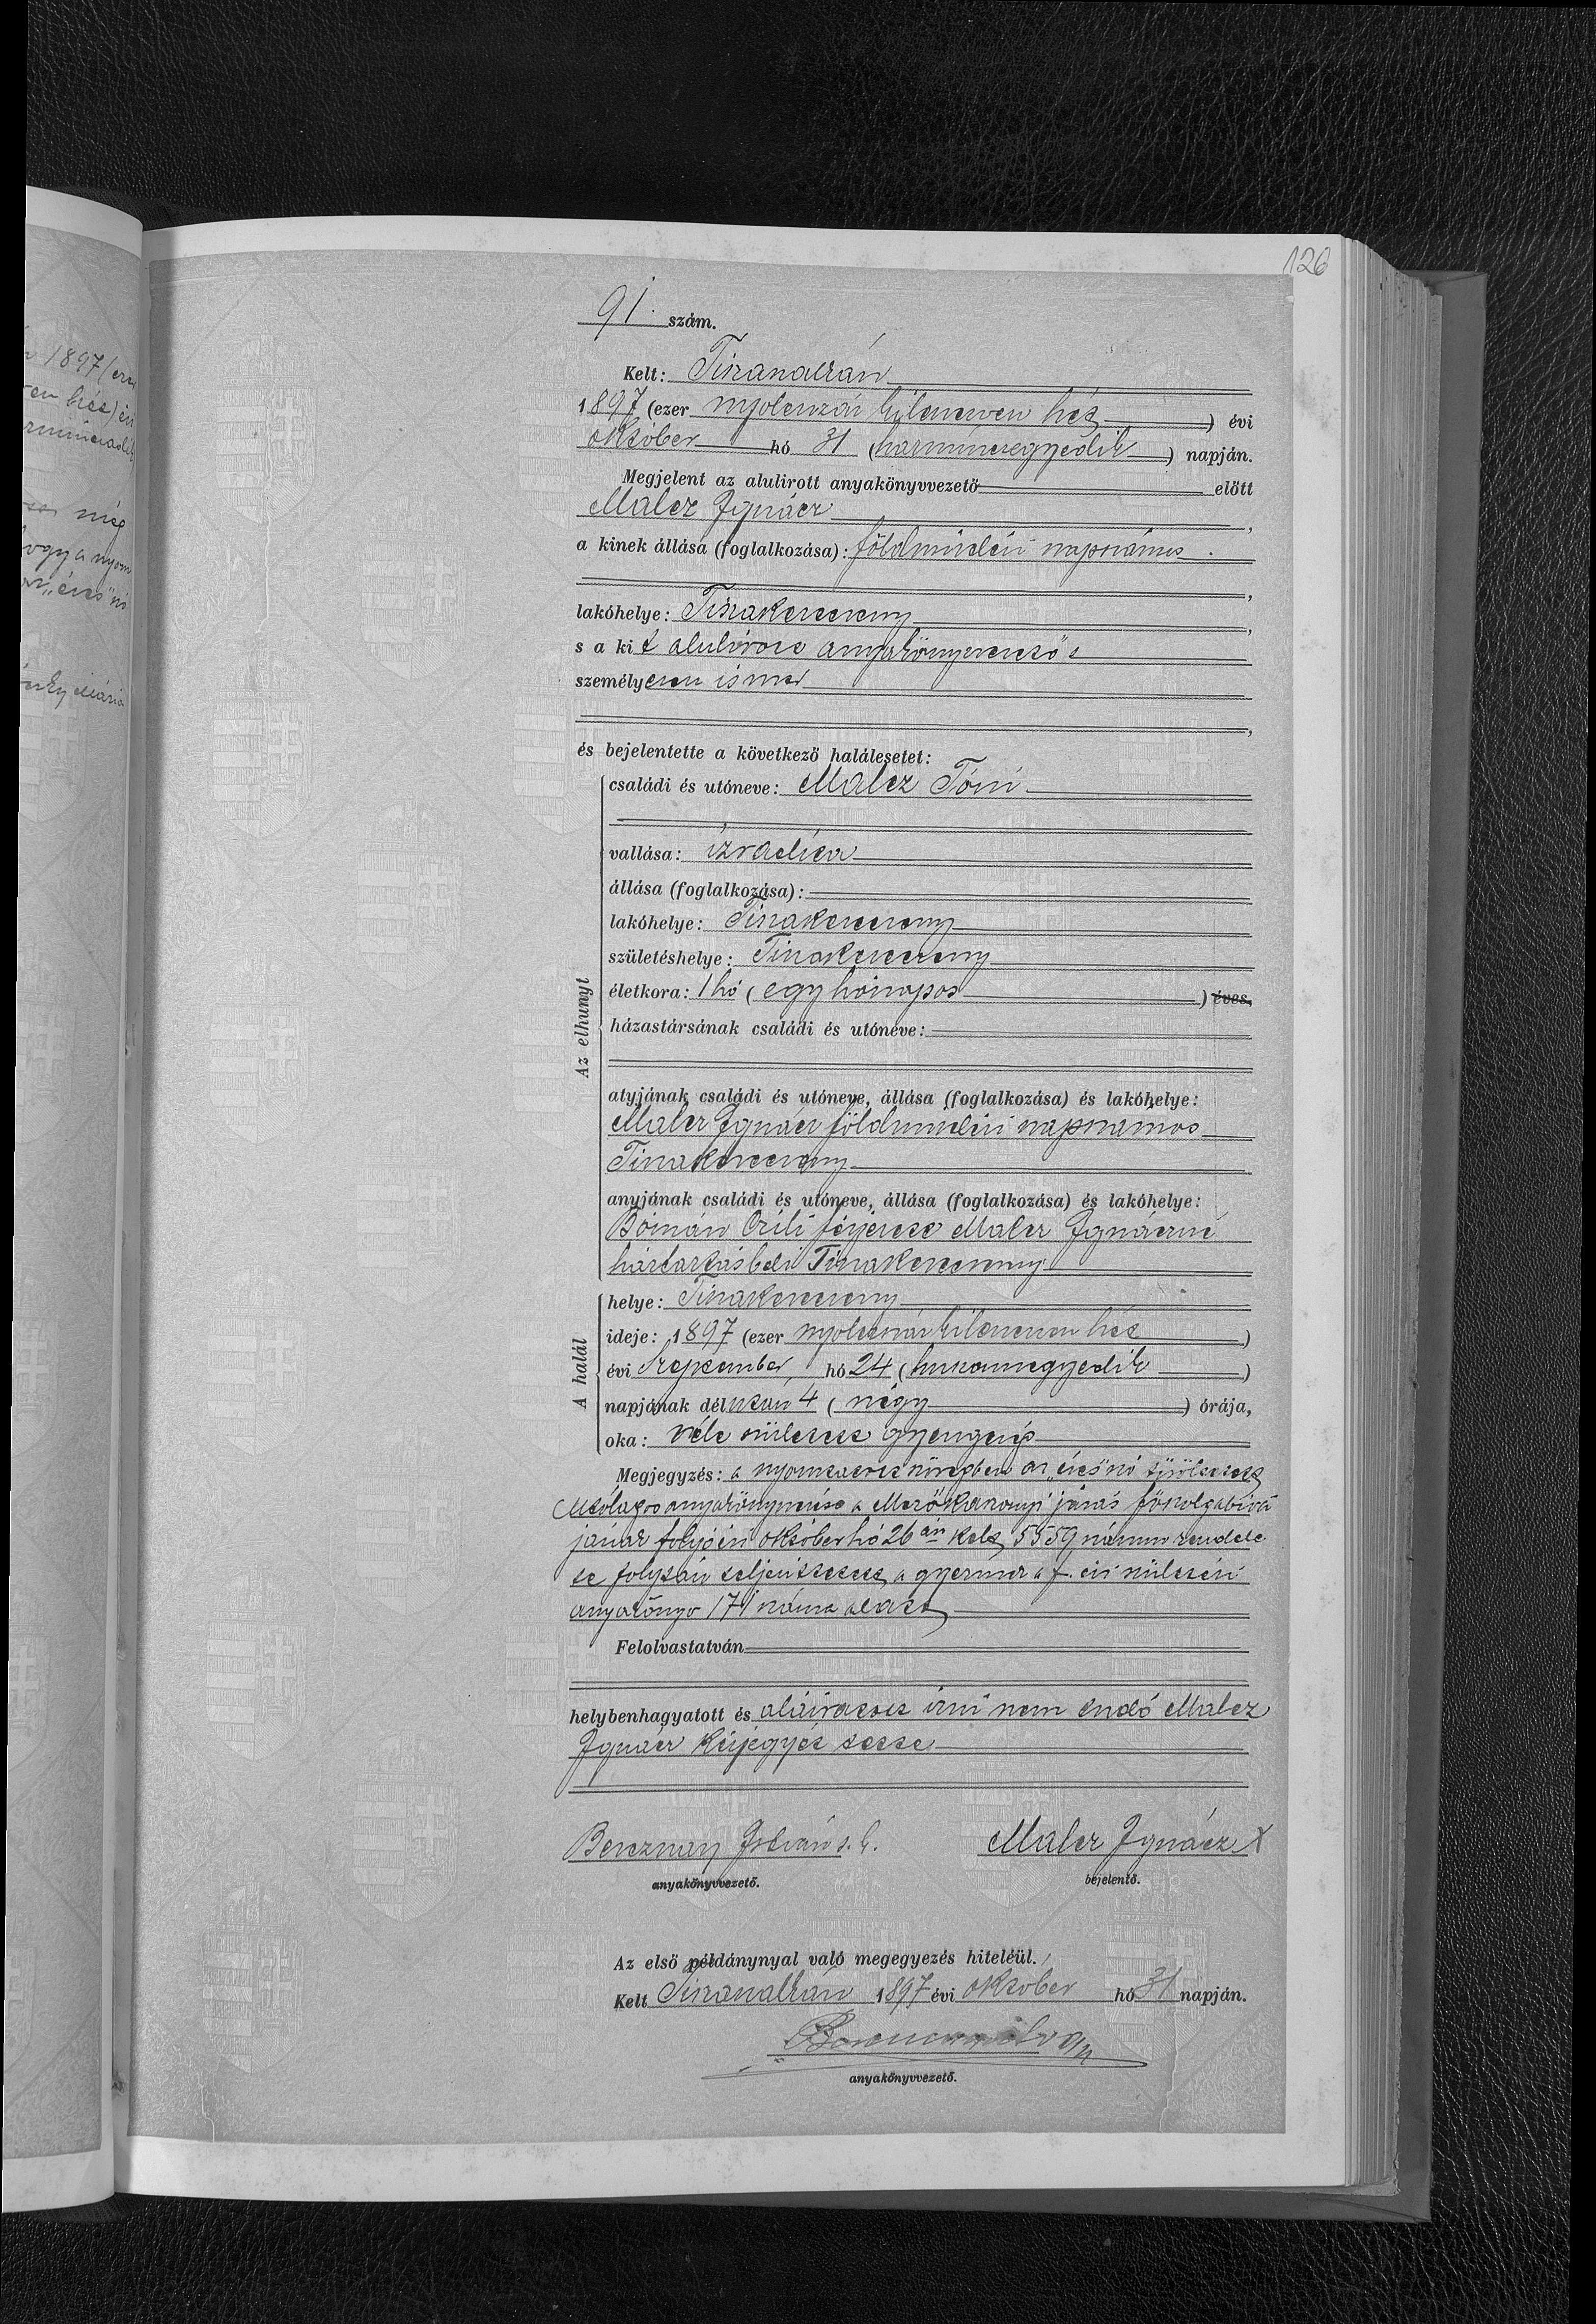 126
91. szám.
Kelt: Tiszanánán
1897 (ezer nyolczszáz kilenczven hét) évi
október hó 31 (harminczegyedik) napján.
Megjelent az alulirott anyakönyvvezető előtt
Malcz Ignácz,
a kinek állása (foglalkozása): földmivelési napszámos
lakóhelye: Tiszakerecseny,
s a kit alulirott anyakönyvvezető
személyesen ismer
és bejelentette a következő halálesetet:
Az elhunyt
családi és utóneve: Malcz Tóni
vallása: izraelita
állása (foglalkozása):
lakóhelye: Tiszakerecseny
születéshelye: Tiszakerecseny
életkora: 1 hó (egy hónapos) éves,
házastársának családi és utóneve:
atyjának családi és utóneve, állása (foglalkozása) és lakóhelye:
Malcz Ignácz földmivelési napszamos
Tiszakerecseny
anyjának családi és utóneve, állása (foglalkozása) és lakóhelye:
Czili férjezett Malcz Ignáczné
háztartásbeli Tiszakerecseny
A halál
helye: Tiszakerecseny
ideje: 1897 (ezer nyolczszáz kilenczven hét)
évi Szeptember hó 24 (huszonnegyedik)
napjának délután 4 (négy) órája,
oka: vele született gyengeség
Megjegyzés: a nyomtatott szövegben az „éves" szó töröltetett
utólagos anyakönyvezése a Mezőkaszonyi járás főszolgabirá
jának folyó évi október hó 26 án kelt 5559 számu rendele
te folytán teljesittetett, a gyermek a f. évi születési
anyakönyv 171 száma alatt
Felolvastatván
helybenhagyatott és aláiratott irni nem tudó Malcz
Ignácz kézjegyét tette
Bereznay István s. k.
anyakönyvvezető.
Malcz Ignácz X
bejelentő.
Az első példánynyal való megegyezés hiteléül.
Kelt 1897 évi október hó 31 napján.
anyakönyvvezető.